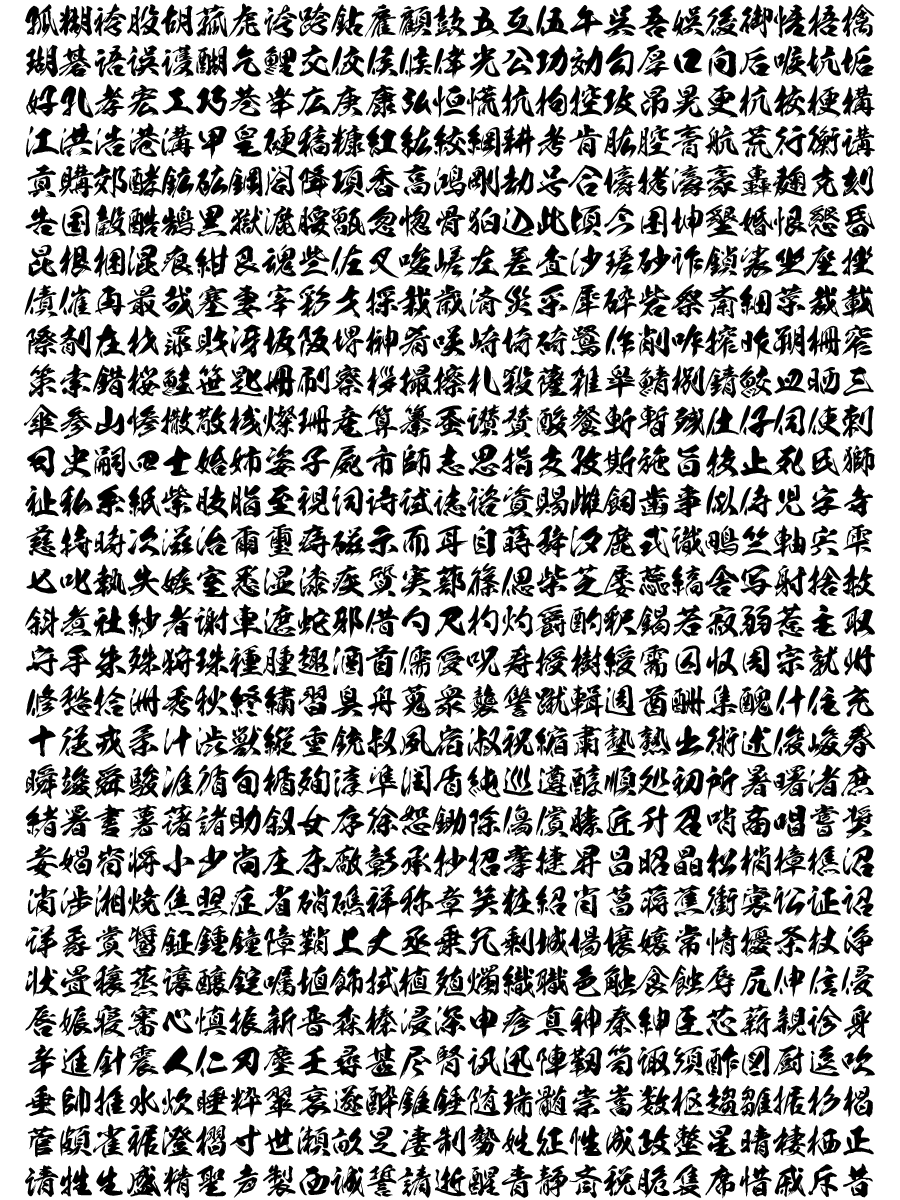 狐糊袴股胡菰虎誇跨鈷雇顧鼓五互伍午呉吾娯後御悟梧檎
瑚碁語誤護醐乞鯉交佼侯候倖光公功効勾厚口向后喉坑垢
好孔孝宏工巧巷幸広庚康弘恒慌抗拘控攻昂晃更杭校梗構
江洪浩港溝甲皇硬稿糠紅紘絞綱耕考肯肱腔膏航荒行衡講
貢購郊酵鉱砿鋼閤降項香高鴻剛劫号合壕拷濠豪轟麹克刻
告国穀酷鵠黒獄漉腰甑忽惚骨狛込此頃今困坤墾婚恨懇昏
昆根梱混痕紺艮魂些佐叉唆嵯左差査沙瑳砂詐鎖裟坐座挫
債催再最哉塞妻宰彩才採栽歳済災采犀砕砦祭斎細菜裁載
際剤在材罪財冴坂阪堺榊肴咲崎埼碕鷺作削咋搾昨朔柵窄
策索錯桜鮭笹匙冊刷察拶撮擦札殺薩雑皐鯖捌錆鮫皿晒三
傘参山惨撒散桟燦珊産算纂蚕讃賛酸餐斬暫残仕仔伺使刺
司史嗣四士始姉姿子屍市師志思指支孜斯施旨枝止死氏獅
祉私糸紙紫肢脂至視詞詩試誌諮資賜雌飼歯事似侍児字寺
慈持時次滋治爾璽痔磁示而耳自蒔辞汐鹿式識鴫竺軸宍雫
七叱執失嫉室悉湿漆疾質実蔀篠偲柴芝屡蕊縞舎写射捨赦
斜煮社紗者謝車遮蛇邪借勺尺杓灼爵酌釈錫若寂弱惹主取
守手朱殊狩珠種腫趣酒首儒受呪寿授樹綬需囚収周宗就州
修愁拾洲秀秋終繍習臭舟蒐衆襲讐蹴輯週酋酬集醜什住充
十従戎柔汁渋獣縦重銃叔夙宿淑祝縮粛塾熟出術述俊峻春
瞬竣舜駿准循旬楯殉淳準潤盾純巡遵醇順処初所暑曙渚庶
緒署書薯藷諸助叙女序徐恕鋤除傷償勝匠升召哨商唱嘗奨
妾娼宵将小少尚庄床廠彰承抄招掌捷昇昌昭晶松梢樟樵沼
消渉湘焼焦照症省硝礁祥称章笑粧紹肖菖蒋蕉衝裳訟証詔
詳象賞醤鉦鍾鐘障鞘上丈丞乗冗剰城場壌嬢常情擾条杖浄
状畳穣蒸譲醸錠嘱埴飾拭植殖燭織職色触食蝕辱尻伸信侵
唇娠寝審心慎振新晋森榛浸深申疹真神秦紳臣芯薪親診身
辛進針震人仁刃塵壬尋甚尽腎訊迅陣靭笥諏須酢図厨逗吹
垂帥推水炊睡粋翠衰遂酔錐錘随瑞髄崇嵩数枢趨雛据杉椙
菅頗雀裾澄摺寸世瀬畝是凄制勢姓征性成政整星晴棲栖正
清牲生盛精聖声製西誠誓請逝醒青静斉税脆隻席惜戚斥昔